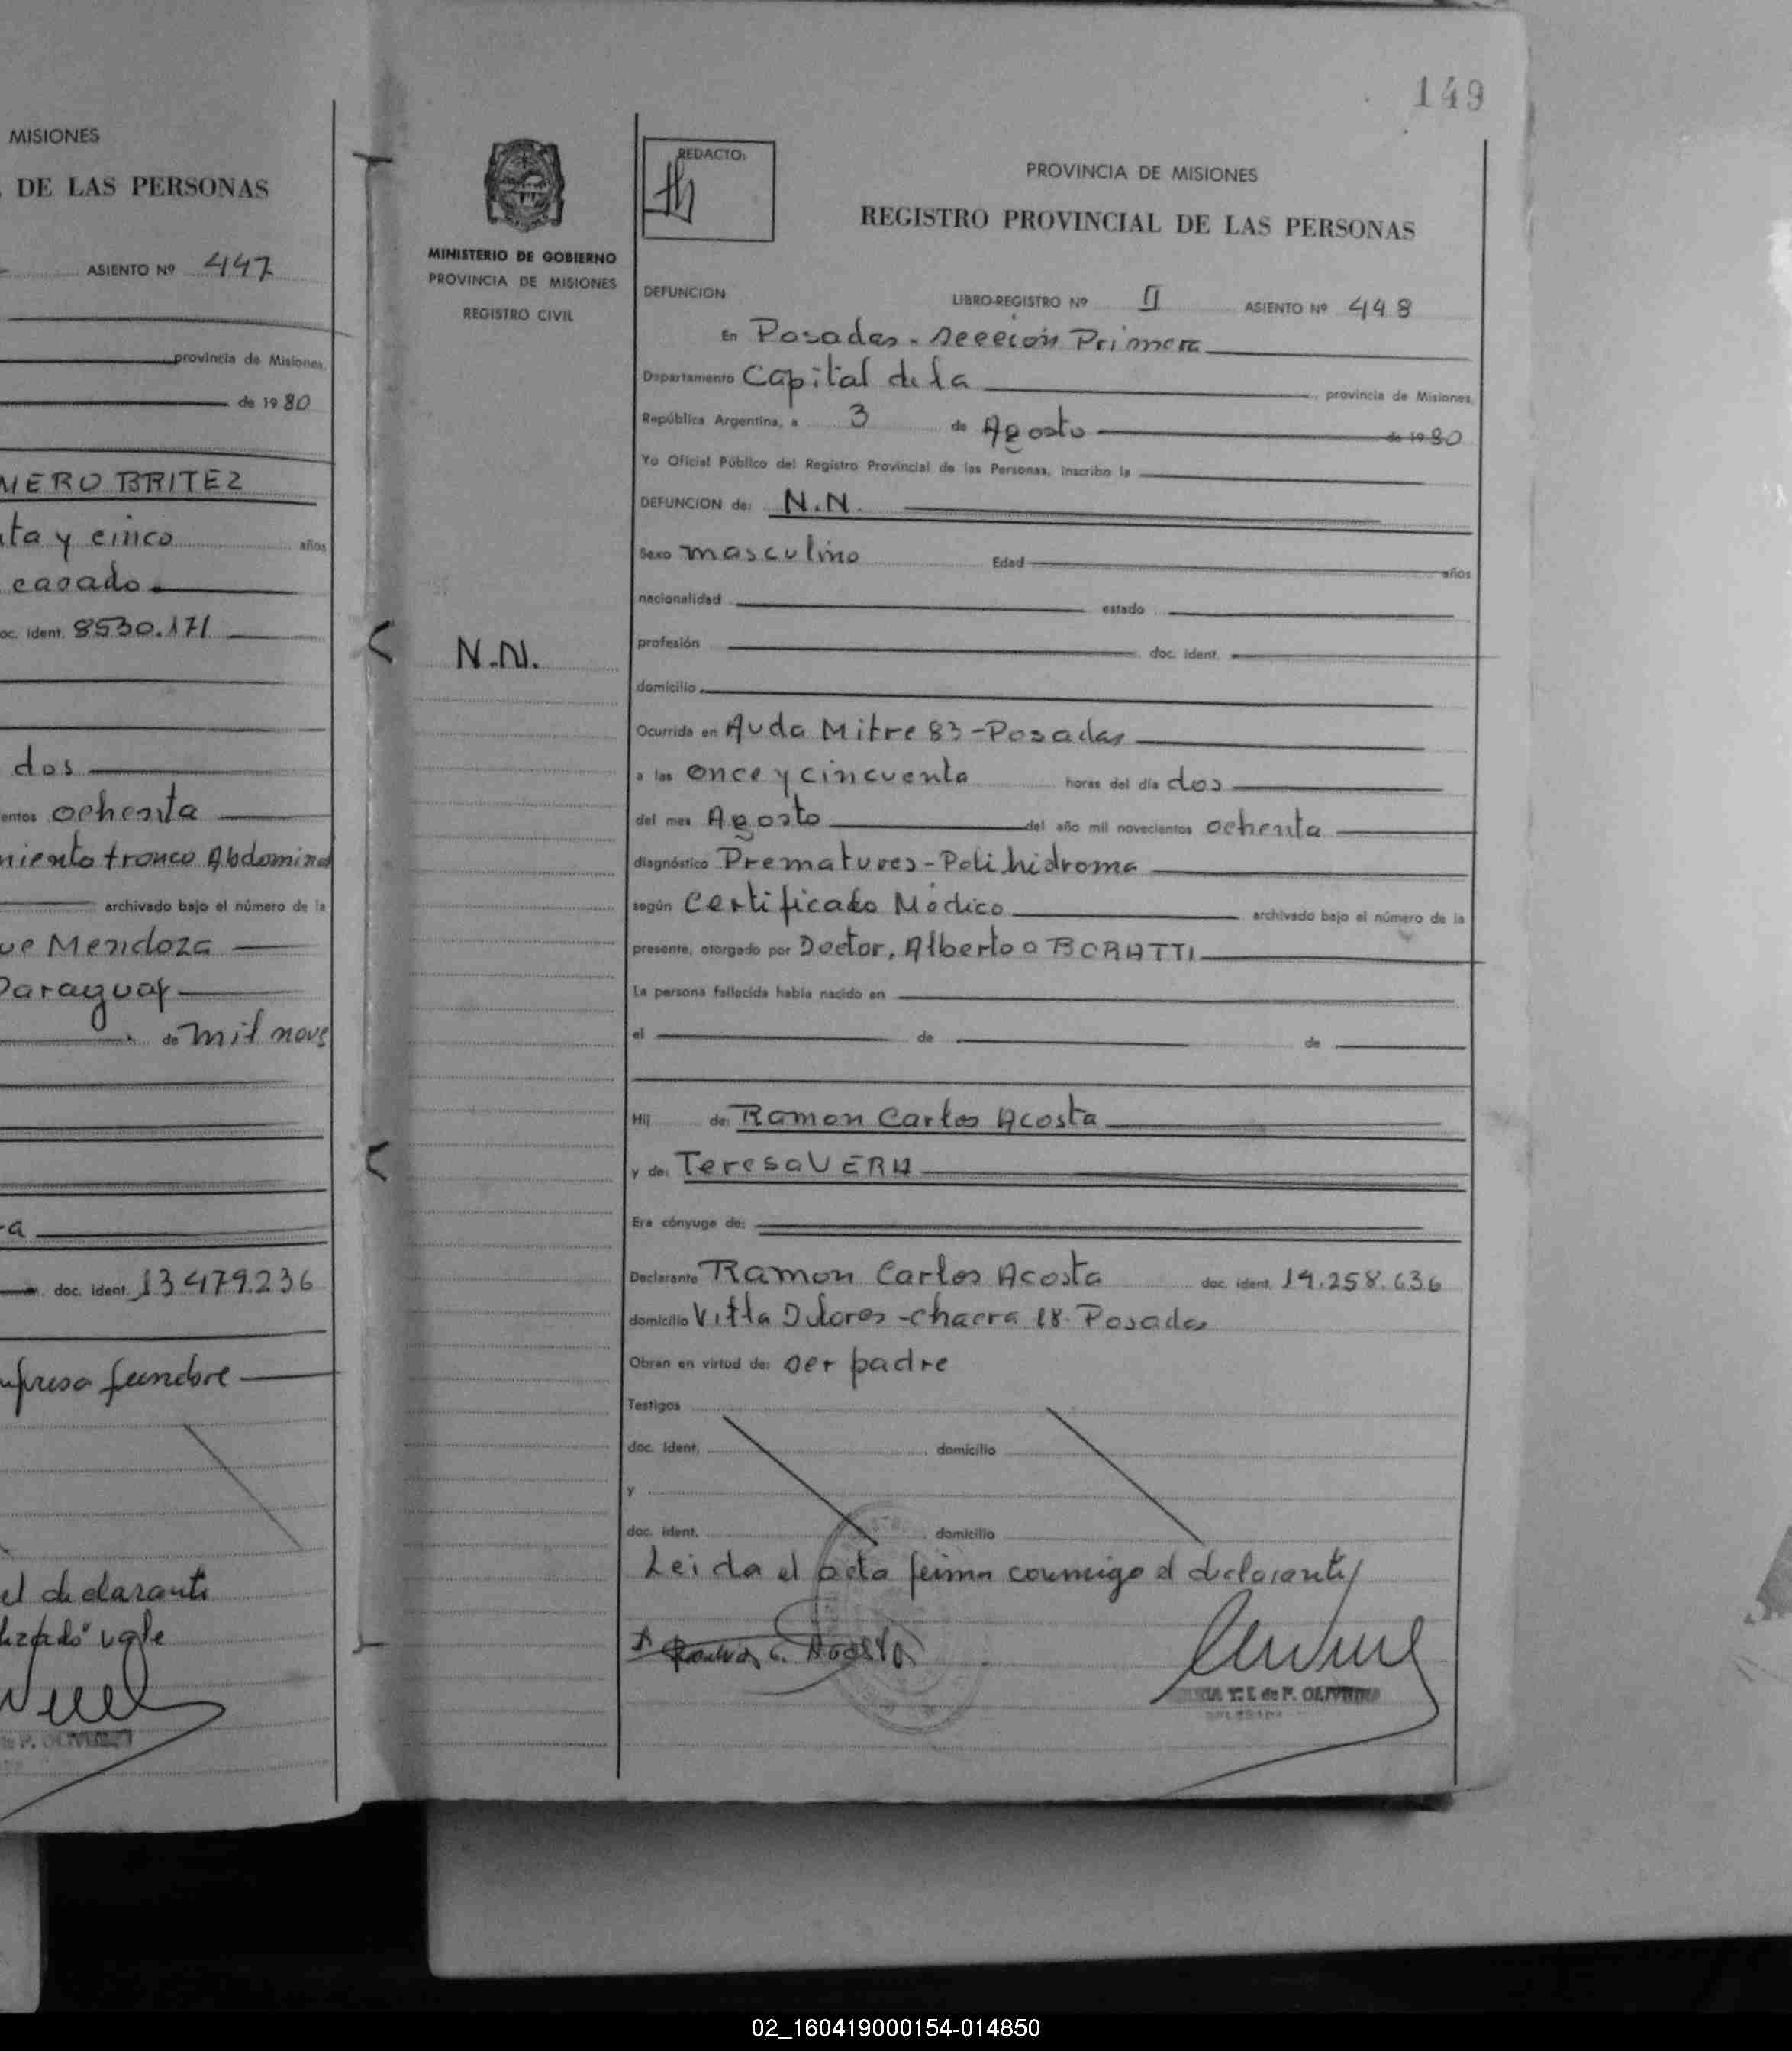 MISIONES
DE LAS PERSONAS
ASIENTO Nº 447
provincia de Misiones,
de 1980
MERO BRITEZ
ta y cinco años
casado
oc. ident. 8530.171
dos
entos ochenta
miento tronco Abdominal
archivado bajo el número de la
ue Mendoza
Paraguay
de mil nove
a
doc. ident. 13479.236
mpresa funebre
el declarante
vale
149
MINISTERIO DE GOBIERNO
PROVINCIA DE MISIONES
REGISTRO CIVIL
N.N.
REDACTO:
PROVINCIA DE MISIONES
REGISTRO PROVINCIAL DE LAS PERSONAS
DEFUNCION LIBRO-REGISTRO Nº II ASIENTO Nº 448
En Posadas - Sección Primera
Departamento Capital de la provincia de Misiones,
República Argentina, a 3 de Agosto de 1980
Yo Oficial Público del Registro Provincial de las Personas, inscribo la
DEFUNCION de: N.N.
Sexo masculino Edad años
nacionalidad estado
profesión doc. ident.
domicilio
Ocurrida en Avda Mitre 83 - Posadas
a las once y cincuenta horas del día dos
del mes Agosto del año mil novecientos ochenta
diagnóstico Prematures - Polihidroma
según Certificado Médico archivado bajo el número de la
presente, otorgado por Doctor, Alberto O BORATTI
La persona fallecida había nacido en
el de de
Hij de: Ramon Carlos Acosta
y de: Teresa VERA
Era cónyuge de:
Declarante Ramon Carlos Acosta doc. ident. 14.258.636
domicilio Villa Dolores - chacra 18. Posadas
Obran en virtud de: ser padre
Testigos
doc. ident. domicilio
y
doc. ident. domicilio
Leida el acta firma conmigo el declarante
Acosta
T. I. de P. OLIVEIRA
02_160419000154-014850